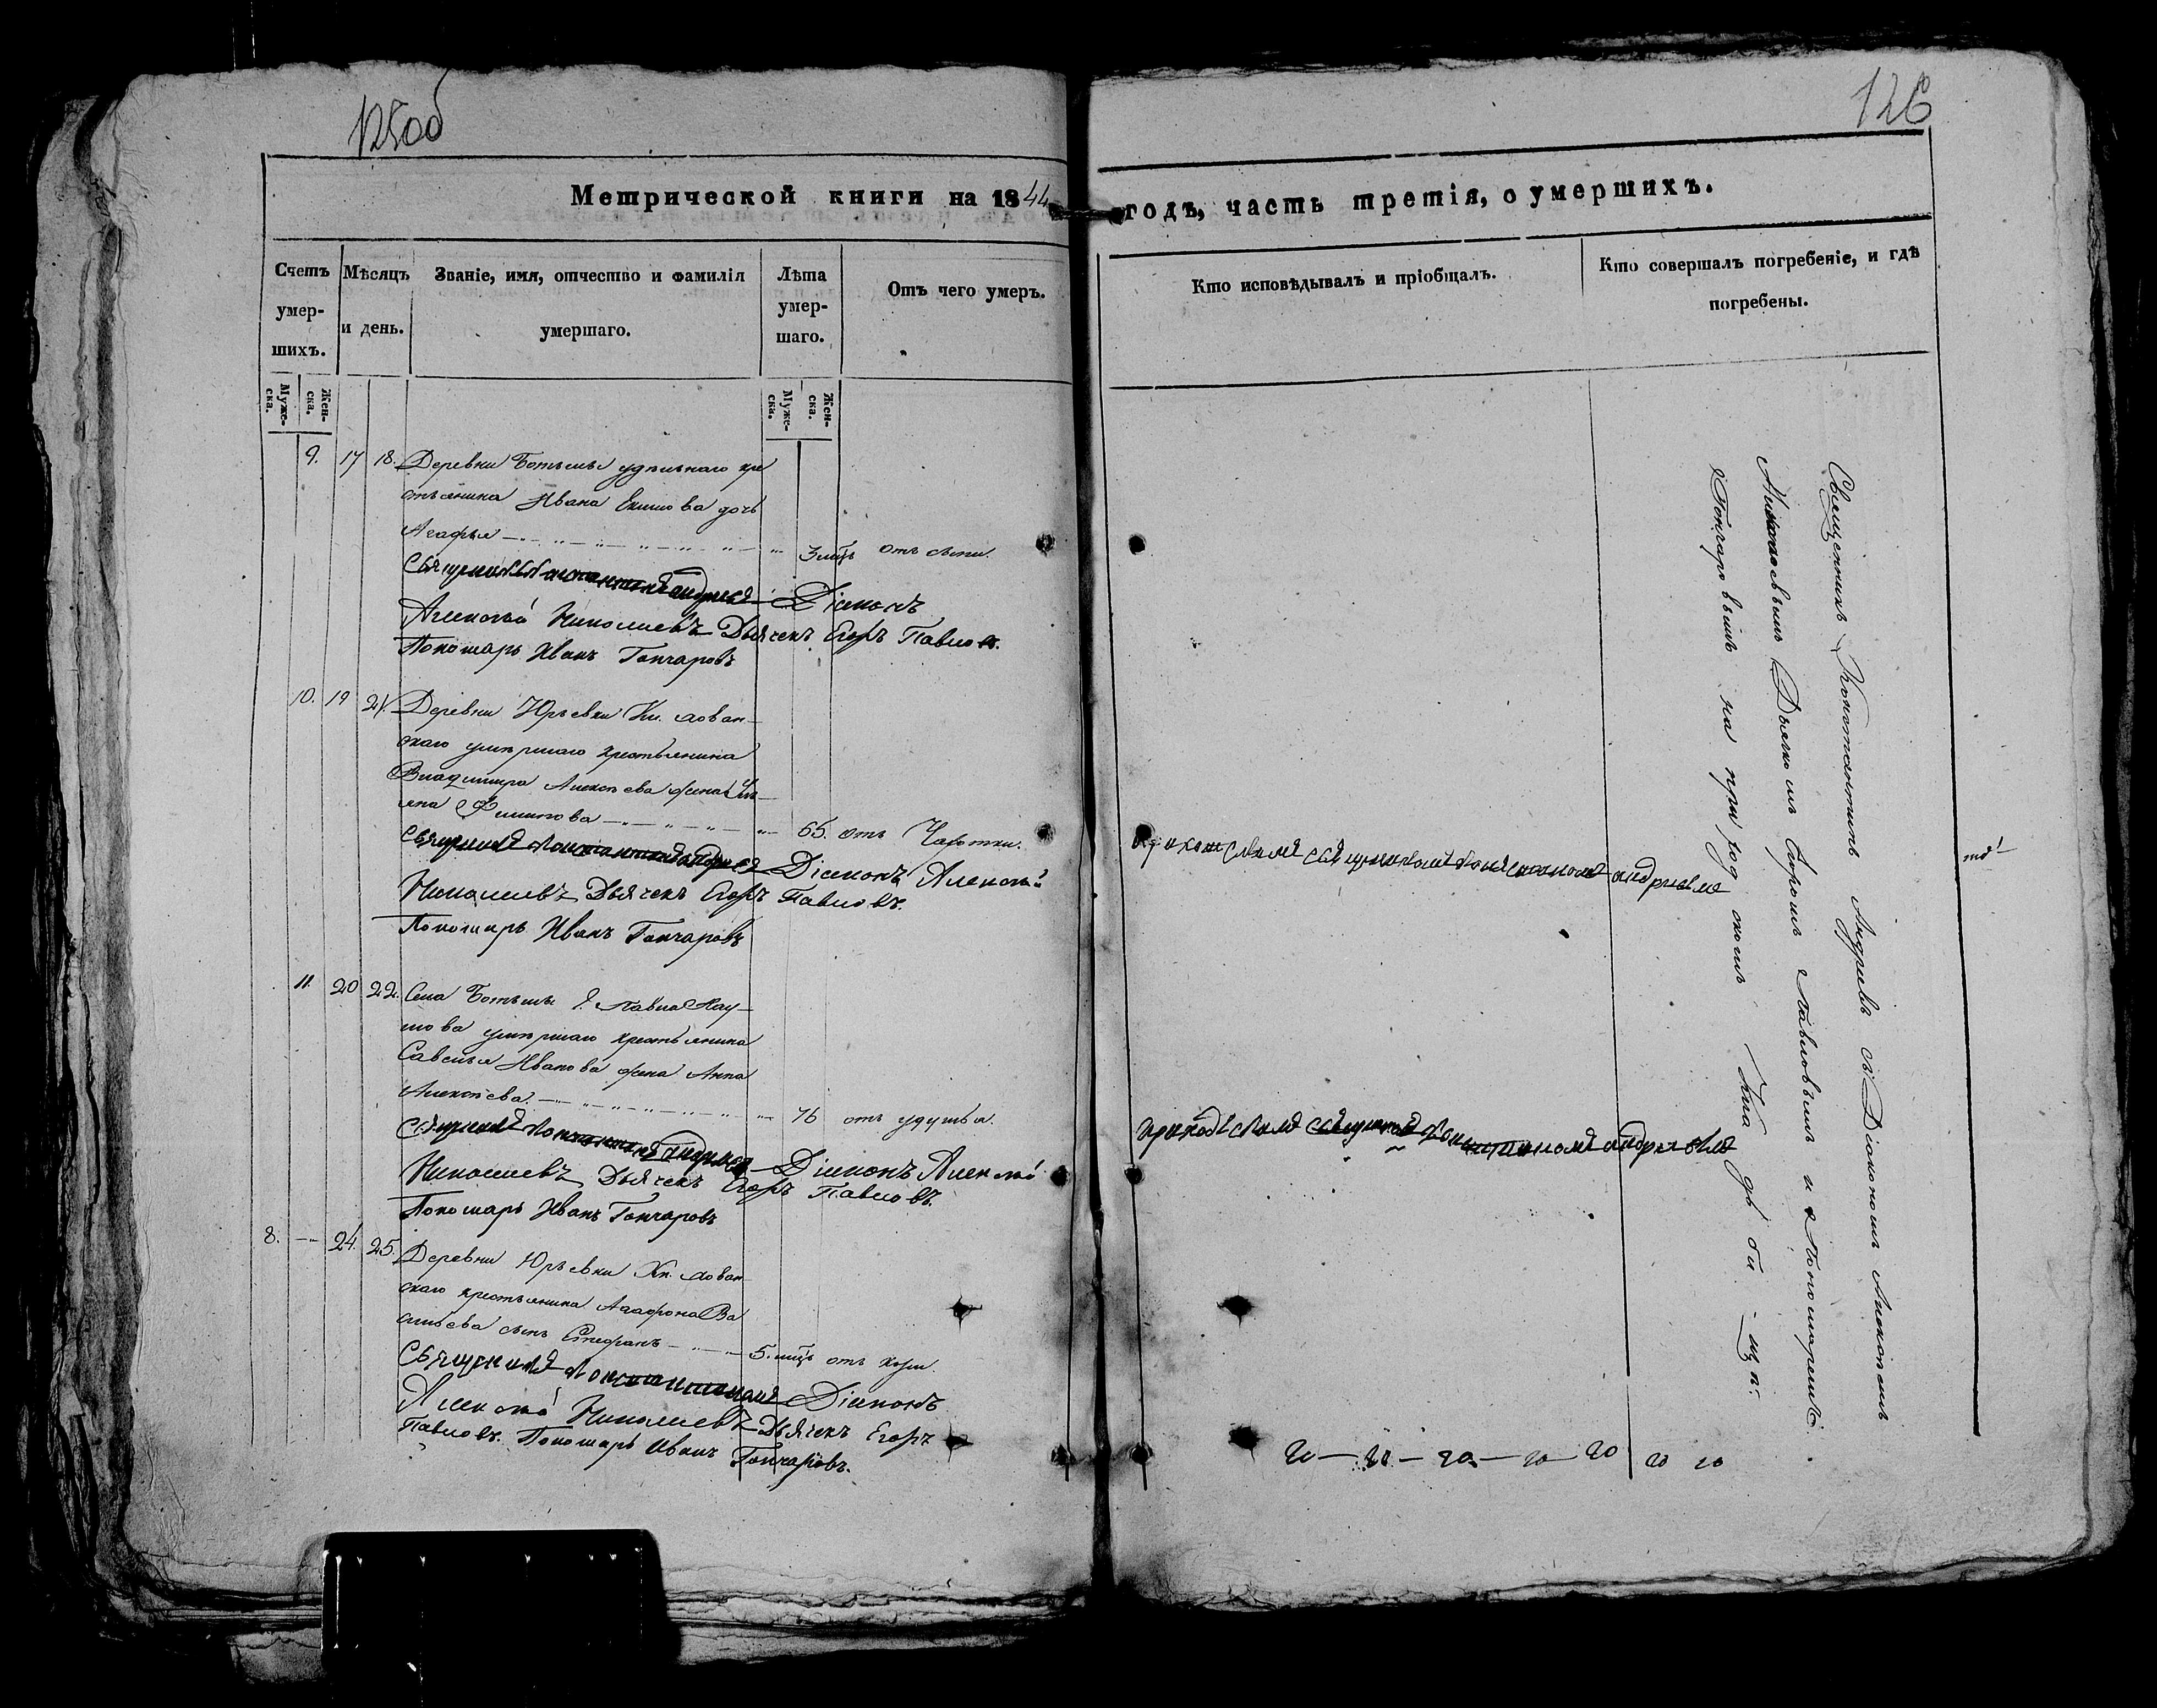 125об
126
Метрической книги на 1844
годъ, часть третія, о умершихъ.
Счетъ умер-шихъ.
Мѣсяцъ и день.
Званіе, имя, отчество и фамилія умершаго.
Лѣта умер-шаго.
Отъ чего умеръ.
Кто исповѣдывалъ и пріобщалъ.
Кто совершалъ погребеніе, и гдѣ погребены.
Муже-ска.
Жен-ска.
Муже-ска.
Жен-ска.
9. 17 18. Деревни Ботьмы удѣльнаго кре
стьянина Ивана Екимова дочь
Агафья 3 мцъ отъ сыпи.
Священникъ Константинъ Андреевъ Діаконъ
Алексѣй Николаевъ Дьячекъ Егоръ Павловъ.
Пономарь Иванъ Гончаровъ
10. 19 21. Деревни Юрьевки Кн. Хован-
скаго умершаго крестьянина
Владимира Алексѣева жена
Филипова 65. отъ Чахотки.
Священникъ Константинъ Андреевъ Діаконъ Алексѣй
Николаевъ Дьячекъ Егоръ Павловъ.
Пономарь Иванъ Гончаровъ
11. 20 22. Села Ботьмы Г. Павла Нау-
мова умершаго крестьянина
Савелья Иванова жена Анна
Алексѣева. 76 отъ удушья.
Священникъ Константинъ Андреевъ Діаконъ Алексѣй
Николаевъ Дьячекъ Егоръ Павловъ.
Пономарь Иванъ Гончаровъ
8. 24. 25. Деревни Юрьевки Кн. Хован-
скаго крестьянина Агафона Ва
сильева сынъ Стефанъ 5. мцъ отъ кори.
Священникъ Константинъ Діаконъ
Алексѣй Николаевъ Дьячекъ Егоръ
Павловъ. Пономарь Иванъ Гончаровъ.
приходскимъ священникомъ Константиномъ Андреевымъ
приходскимъ священникомъ Константиномъ Андреевымъ
Священникъ Константинъ Андреевъ съ Діакономъ Алексѣемъ
Николаевымъ Дьячкомъ Егоромъ Павловымъ и Пономаремъ
Гончаровымъ на приходскомъ Кладбищѣ.